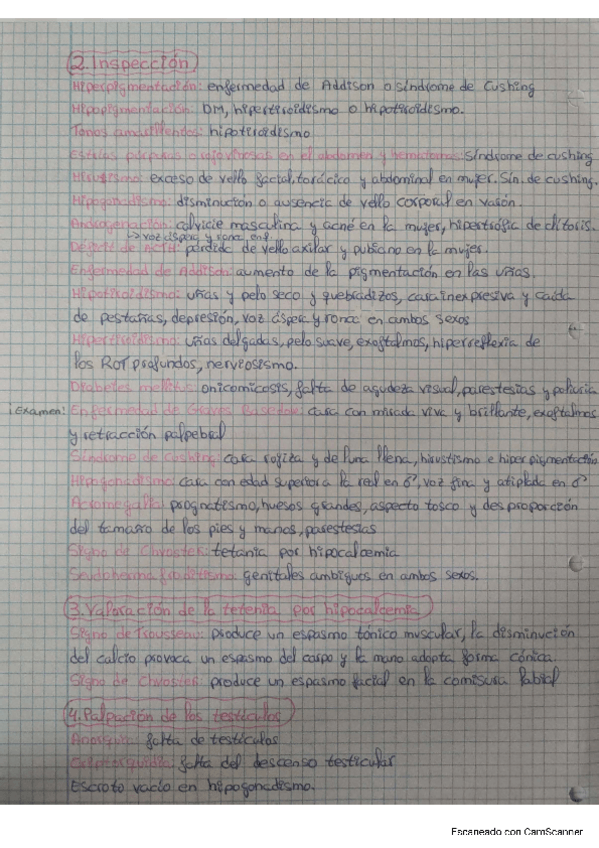 2. Inspección
Hiperpigmentación: enfermedad de Addison o síndrome de Cushing
Hipopigmentación: DM, hipertiroidismo o hipotiroidismo.
Tonos amarillentos: hipotiroidismo
Estrías púrpuras o rojo vinosas en el abdomen y hematomas: síndrome de cushing
Hirsutismo: exceso de vello facial, torácico y abdominal en mujer. Sín. de cushing.
Hipogonadismo: disminución o ausencia de vello corporal en varón.
calvicie masculina y acné en la mujer, hipertrofia de clítoris.
↳ voz áspera y ronca
Déficit de ACTH: pérdida de vello axilar y pubiano en la mujer.
Enfermedad de Addison: aumento de la pigmentación en las uñas.
Hipotiroidismo: uñas y pelo seco y quebradizos, cara inexpresiva y caída
de pestañas, depresión, voz áspera y ronca en ambos sexos
Hipertiroidismo: uñas delgadas, pelo suave, exoftalmos, hiperreflexia de
los ROT profundos, nerviosismo.
Diabetes mellitus: onicomicosis, falta de agudeza visual, parestesias y poliuria
¡Examen! Enfermedad de Graves Basedow: cara con mirada viva y brillante, exoftalmos
y retracción palpebral
Síndrome de Cushing: cara rojiza y de luna llena, hirsutismo e hiperpigmentación
Hipogonadismo: cara con edad superior a la real en ♂, voz fina y atiplada en ♂
Acromegalia: prognatismo, huesos grandes, aspecto tosco y desproporción
del tamaño de los pies y manos, parestesias
Signo de Chvostek: tetania por hipocalcemia
genitales ambiguos en ambos sexos.
3. Valoración de la tetania por hipocalcemia
Signo de Trousseau: produce un espasmo tónico muscular, la disminución
del calcio provoca un espasmo del carpo y la mano adopta forma cónica
Signo de Chvostek: produce un espasmo facial en la comisura labial
4. Palpación de los testículos
Anorquia: falta de testículos
Criptorquidia: falta del descenso testicular
Escroto vacío en hipogonadismo.
Escaneado con CamScanner